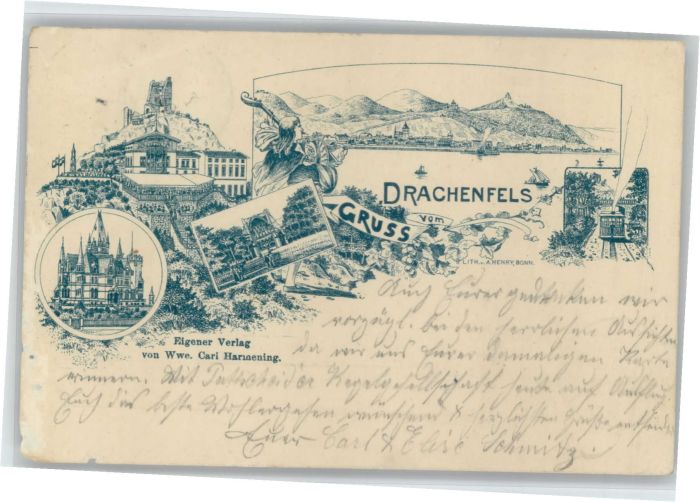 DRACHENFELS
GRUSS vom
LITH. v. A. HENRY, BONN.
Eigener Verlag
von Wwe. Carl Harmening.
Auch Eurer gedenken wir
vorzügl. bei den herrlichen Aussichten
da wir uns Eurer damaligen Karte
erinnern. Mit Kegelgesellschaft heute auf Ausflug.
Euch das beste Wohlergehen wünschend & herzlichsten Grüße
Euer Carl & Elise Schmitz.